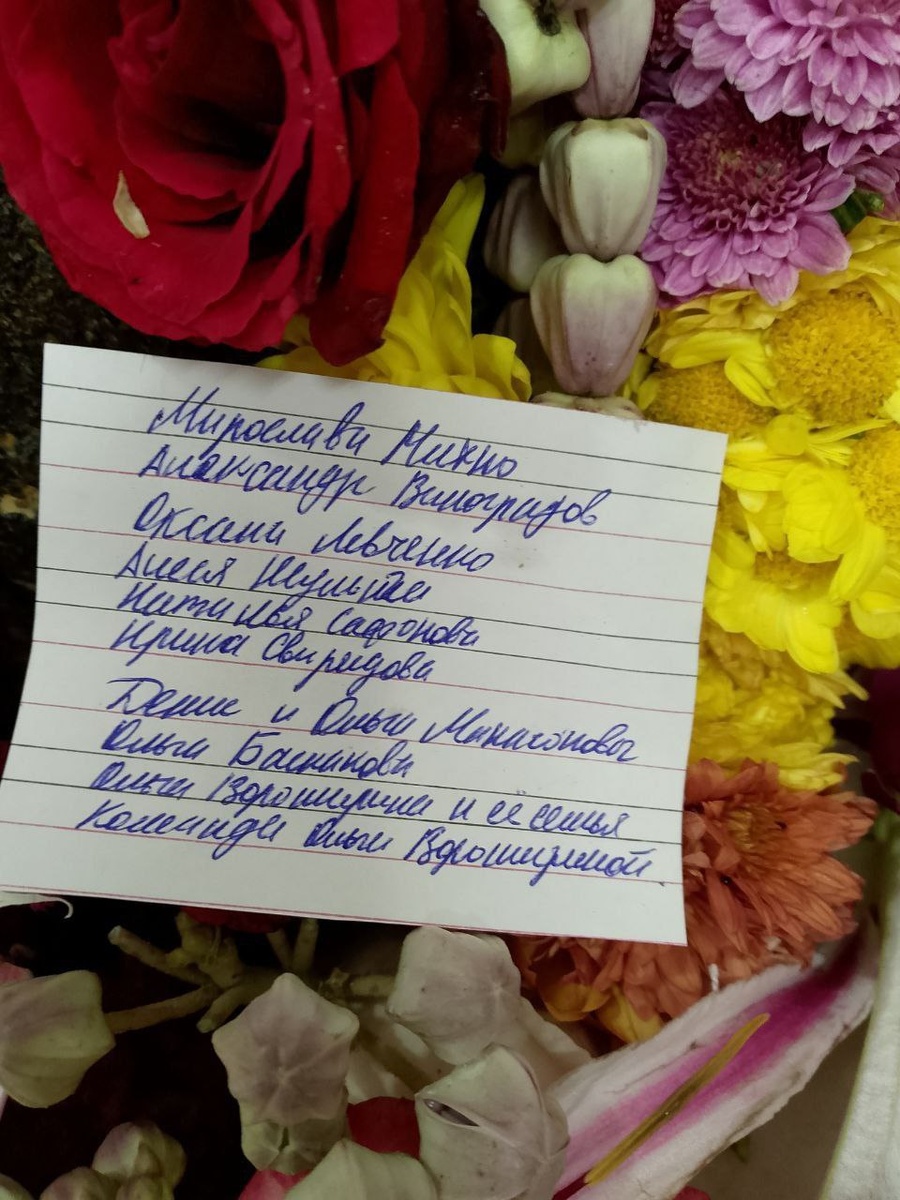 Мирослава Михно
Александр Виноградов
Оксана Левченко
Алеся Шульга
Наталья Сафонова
Ирина Свиридова
Денис и Ольга
Ольга
Ольга Ворошилина и её семья
Команда Ольги Ворошилиной